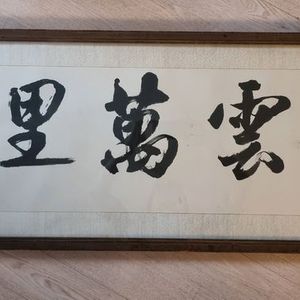 雲萬里